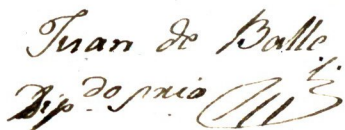 Juan de Balle
Dip.do srio